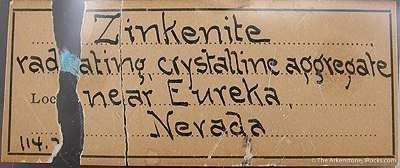 Zinkenite
radiating, crystalline aggregate
Loc near Eureka
Nevada
114.
© The Arkenstone, iRocks.com